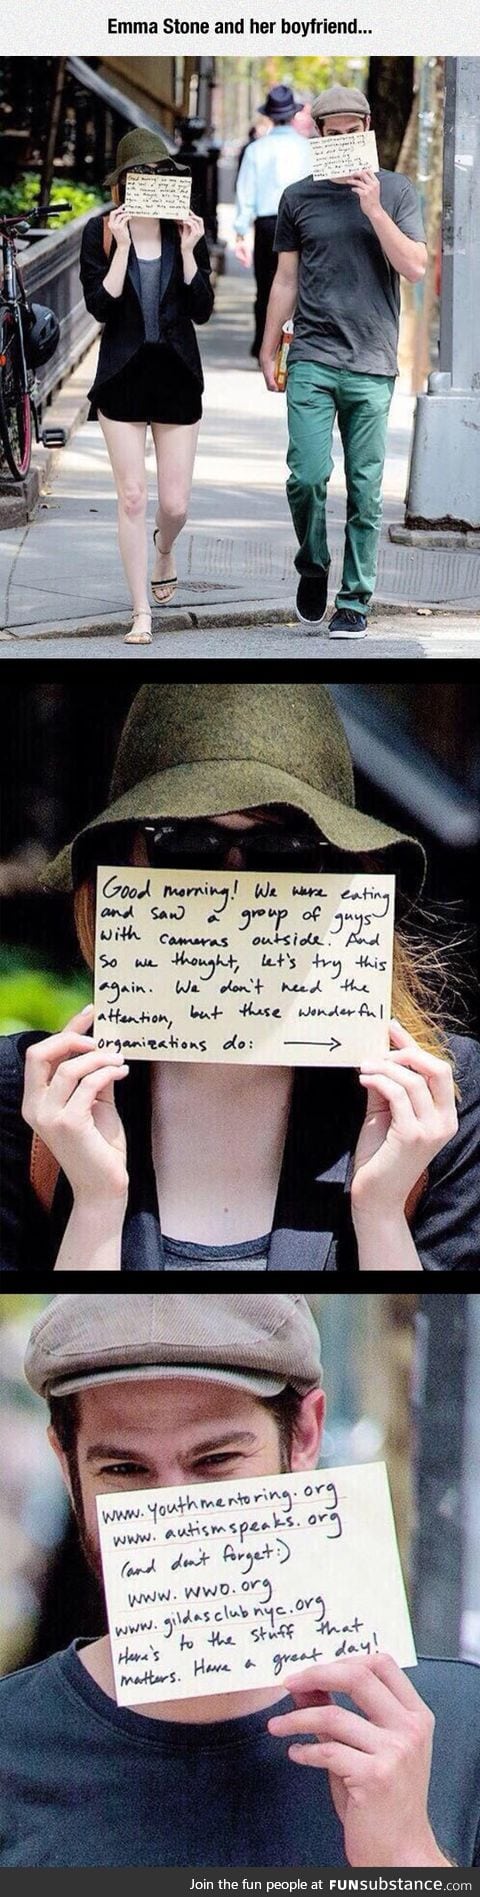 Emma Stone and her boyfriend...
Good morning! We were eating
and saw a group of guys
with cameras outside. And
so we thought, let's try this
again. We don't need the
attention, but these wonderful
organizations do: →
www.youthmentoring.org
www.autismspeaks.org
(and don't forget:)
www.wwo.org
www.gildasclubnyc.org
Here's to the stuff that
matters. Have a great day!
Join the fun people at FUNsubstance.com